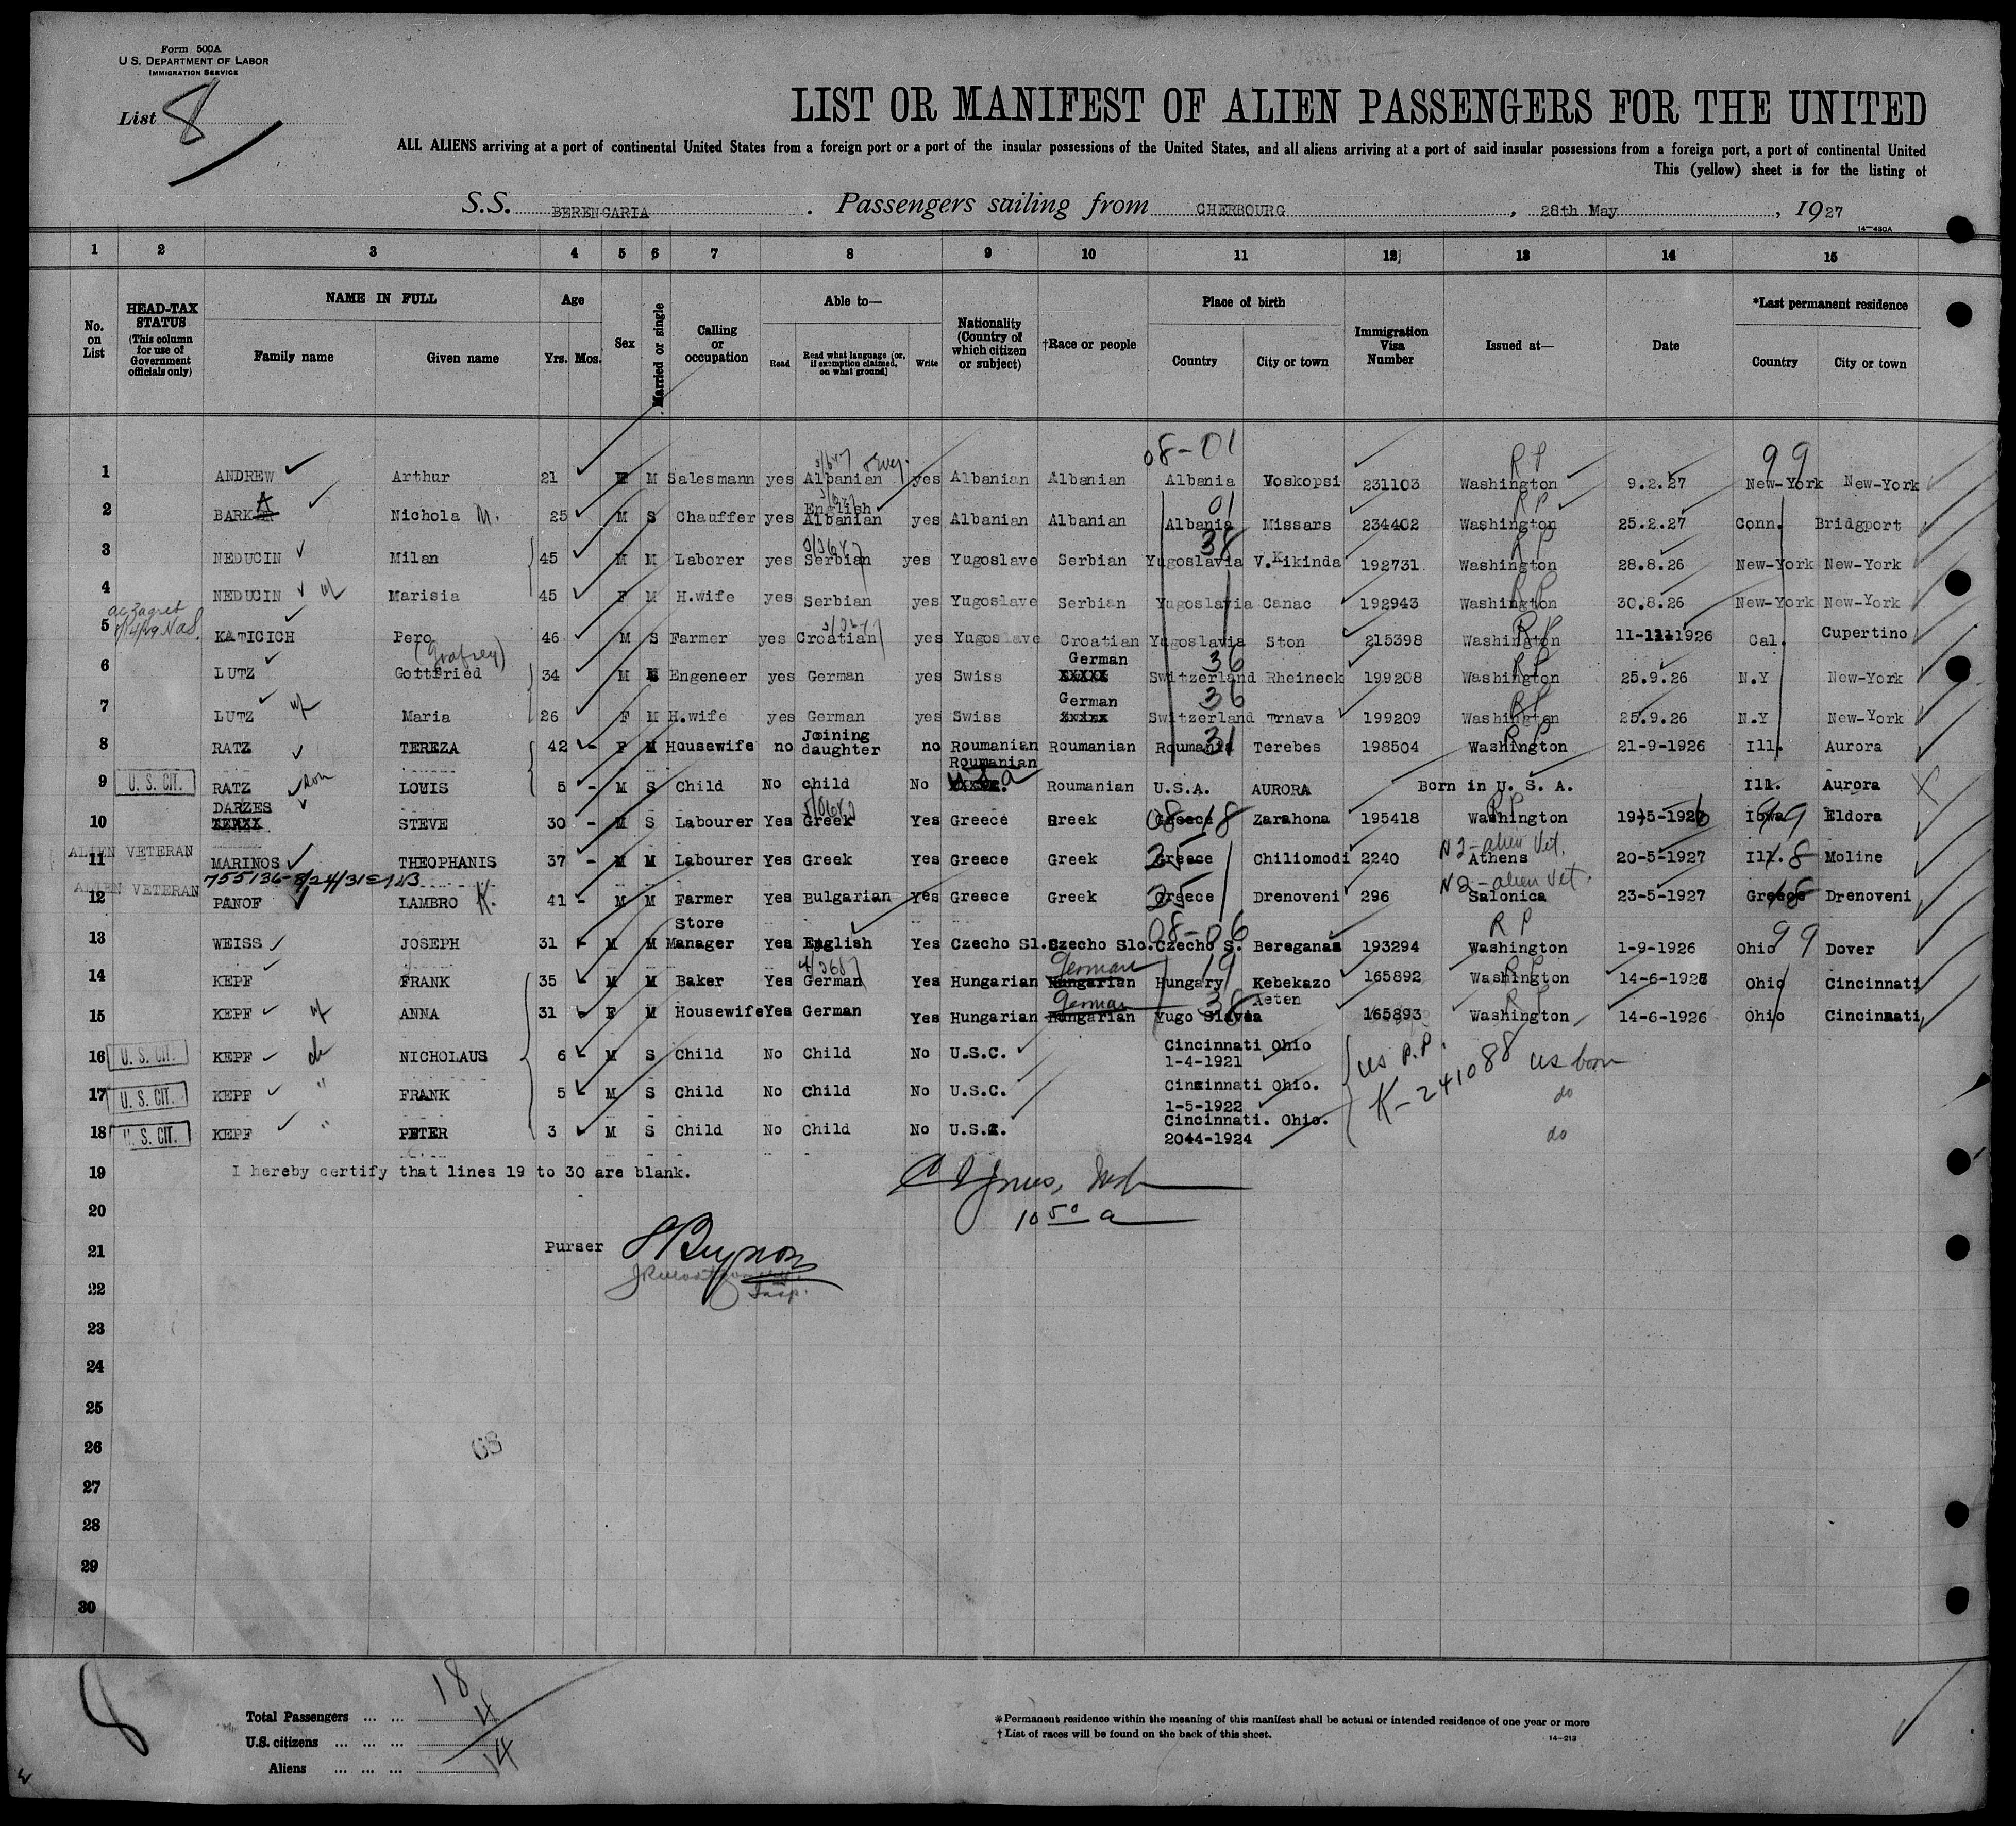 Form 500A
U.S. DEPARTMENT OF LABOR
IMMIGRATION SERVICE
List 8
LIST OR MANIFEST OF ALIEN PASSENGERS FOR THE UNITED
ALL ALIENS arriving at a port of continental United States from a foreign port or a port of the insular possessions of the United States, and all aliens arriving at a port of said insular possessions from a foreign port, a port of continental United
This (yellow) sheet is for the listing of
S.S. BERENGARIA. Passengers sailing from CHERBOURG, 28th May, 1927
14-480A
1 2 3 4 5 6 7 8 9 10 11 12 13 14 15
No. on List
HEAD-TAX STATUS (This column for use of Government officials only)
NAME IN FULL
Family name Given name
Age
Yrs. Mos.
Sex
Married or single
Calling or occupation
Able to—
Read Read what language (or, if exemption claimed, on what ground) Write
Nationality (Country of which citizen or subject)
†Race or people
Place of birth
Country City or town
Immigration Visa Number
Issued at—
Date
*Last permanent residence
Country City or town
08-01
1 ANDREW Arthur 21 M M Salesmann yes Albanian yes Albanian Albanian Albania Voskopsi 231103 RP Washington 9.2.27 99 New-York New-York
2 BARKER A Nichola M. 25 M S Chauffer yes English Albanian yes Albanian Albanian 01 Albania Missars 234402 RP Washington 25.2.27 Conn. Bridgport
3 NEDUCIN Milan 45 M M Laborer yes Serbian yes Yugoslave Serbian 38 Yugoslavia V.Kikinda 192731 RP Washington 28.8.26 New-York New-York
4 NEDUCIN wf Marisia 45 F M H.wife yes Serbian yes Yugoslave Serbian Yugoslavia Canac 192943 RP Washington 30.8.26 New-York New-York
5 KATICICH Pero 46 M S Farmer yes Croatian yes Yugoslave Croatian Yugoslavia Ston 215398 RP Washington 11-11-1926 Cal. Cupertino
6 LUTZ (Godfrey) Gottfried 34 M M Engeneer yes German yes Swiss German XXXXX 36 Switzerland Rheineck 199208 RP Washington 25.9.26 N.Y New-York
7 LUTZ wf Maria 26 F M H.wife yes German yes Swiss German xxxxx 36 Switzerland Trnava 199209 RP Washington 25.9.26 N.Y New-York
8 RATZ TEREZA 42 - F M Housewife no Joining daughter no Roumanian Roumanian 31 Roumania Terebes 198504 RP Washington 21-9-1926 Ill. Aurora
9 U. S. CIT. RATZ son LOUIS 5 - M S Child No child No Roumanian USA Roumanian U.S.A. AURORA Born in U. S. A. Ill. Aurora X
10 DARZES XXXXX STEVE 30 - M S Labourer Yes Greek Yes Greece Greek 08-18 Greece Zarahona 195418 RP Washington 19-5-1926 99 Iowa Eldora
ALIEN VETERAN
11 MARINOS THEOPHANIS 37 - M M Labourer Yes Greek Yes Greece Greek 25 Greece Chiliomodi 2240 N2-alien Vet. Athens 20-5-1927 Ill. 8 Moline
ALIEN VETERAN
12 PANOF LAMBRO K. 41 - M M Farmer Yes Bulgarian Yes Greece Greek 25 Greece Drenoveni 296 N2-alien Vet. Salonica 23-5-1927 Greece 18 Drenoveni
13 WEISS JOSEPH 31 M M Store Manager Yes English Yes Czecho Sl. Szecho Slo. 08-06 Czecho S. Bereganas 193294 RP Washington 1-9-1926 Ohio 99 Dover
14 KEPF FRANK 35 M M Baker Yes German Yes Hungarian German Hungarian 19 Hungary Kebekazo 165892 RP Washington 14-6-1926 Ohio Cincinnati
15 KEPF wf ANNA 31 F M Housewife Yes German Yes Hungarian German Hungarian 38 Yugo Slavia Aeten 165893 RP Washington 14-6-1926 Ohio Cincinnati
16 U. S. CIT. KEPF ch NICHOLAUS 6 M S Child No Child No U.S.C. Cincinnati Ohio 1-4-1921 US P.P. K-241088 us born
17 U. S. CIT. KEPF " FRANK 5 M S Child No Child No U.S.C. Cincinnati Ohio. 1-5-1922 do
18 U. S. CIT. KEPF " PETER 3 M S Child No Child No U.S.C. Cincinnati. Ohio. 2044-1924 do
19 I hereby certify that lines 19 to 30 are blank.
20 10 50 a
21 Purser
22 Insp.
23
24
25
26
27
28
29
30
8
Total Passengers ... ... 18
U.S. citizens ... ... ... 4
Aliens ... ... ... 14
*Permanent residence within the meaning of this manifest shall be actual or intended residence of one year or more
†List of races will be found on the back of this sheet.
14-213